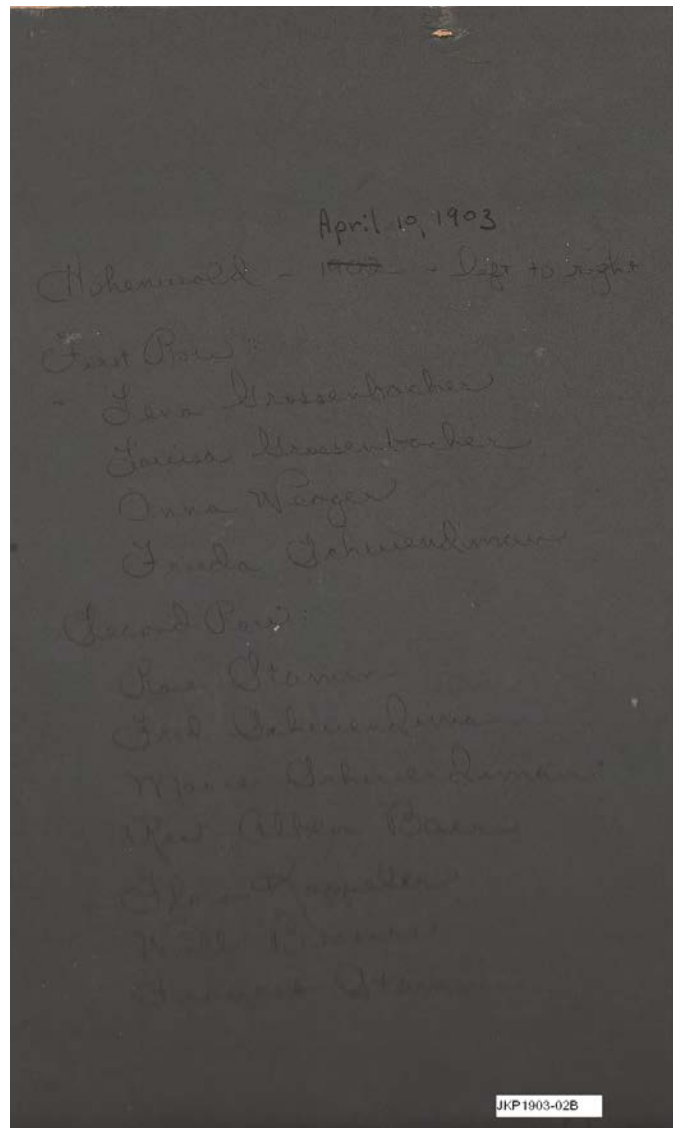 April 10, 1903
Hohenwald - 1902 - left to right
First Row:
Lena Grossenbacher
Louisa Grossenbacher
Anna Wenger
Frieda Schwendimann
Second Row:
Rose Stamm
Fred Schwendiman
Marie Schwendimann
Rev. Albern Baer
Flora Kappeler
Will
Stamm
JKP1903-02B